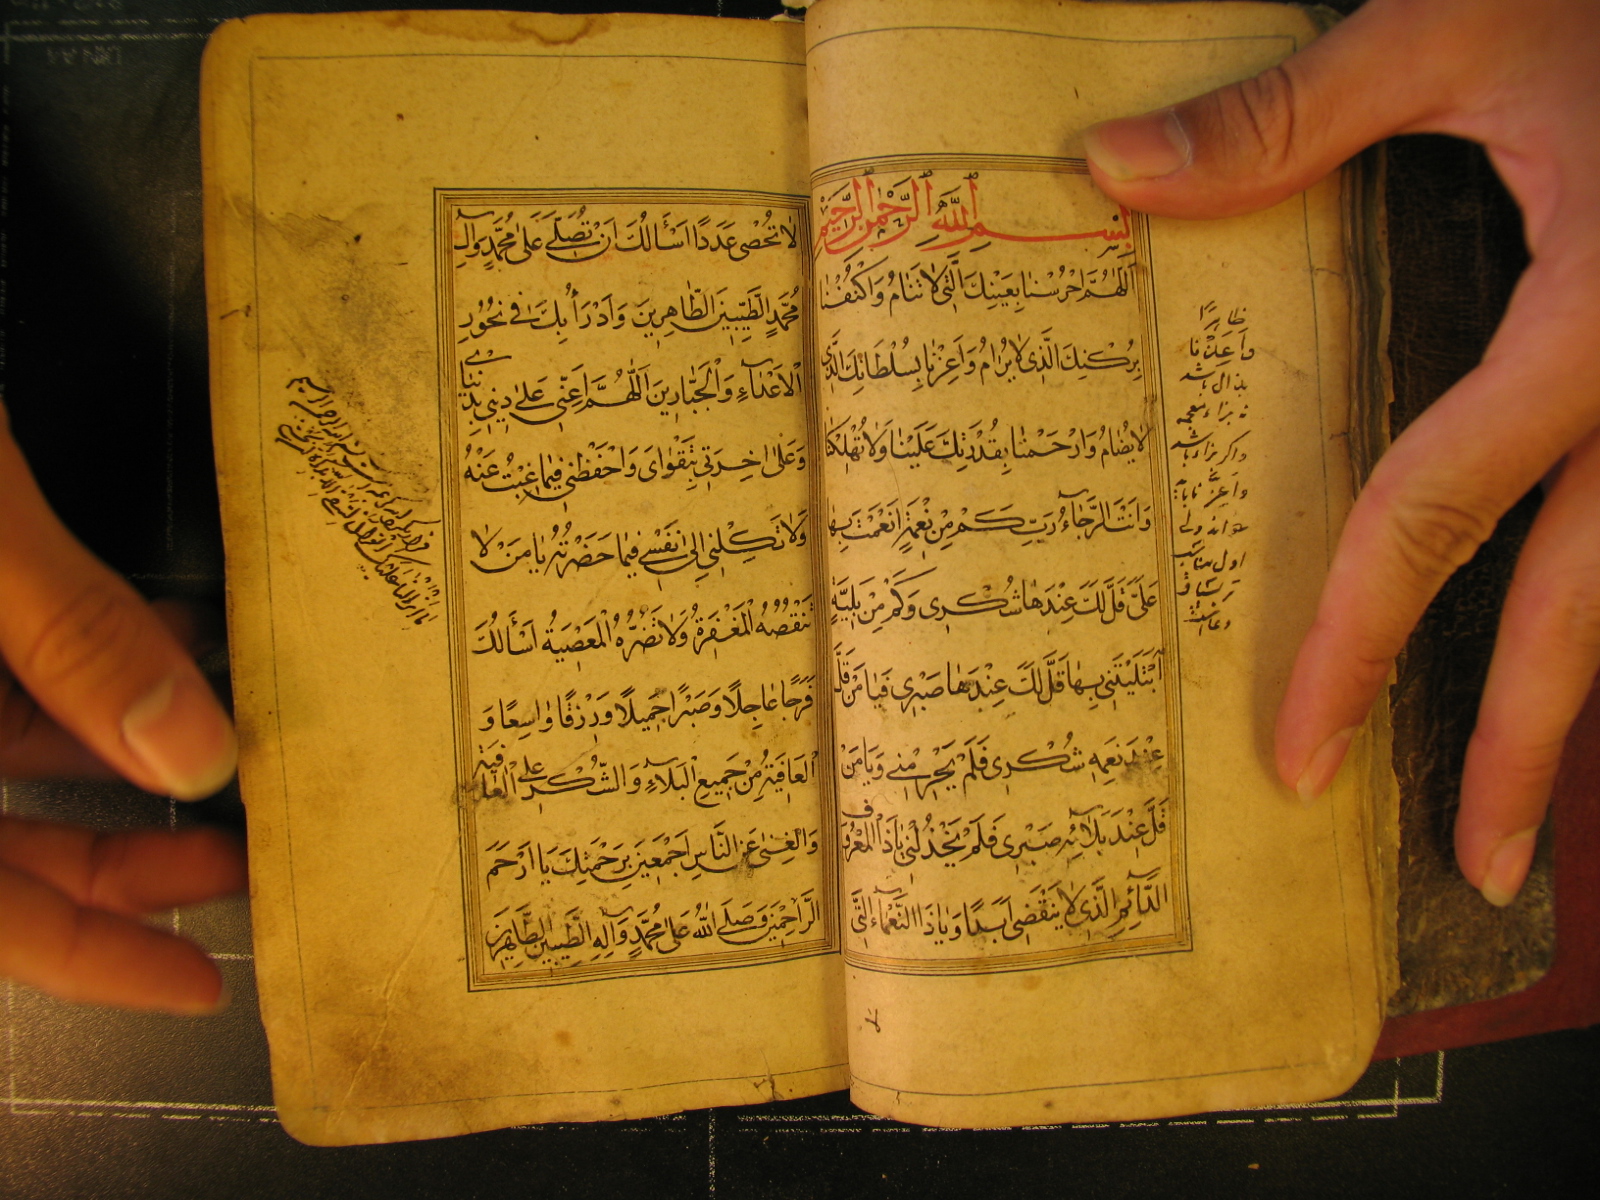 بِسْمِ اللّٰهِ الرَّحْمٰنِ الرَّحِيْمِ
اَللّٰهُمَّ احْرُسْنا بِعَيْنِكَ الَّتى لاٰ تَنٰامُ وَاكْنُفْنٰا
بِرُكْنِكَ الَّذى لاٰ يُرٰامُ وَاَعِزْنٰا بِسُلْطٰانِكَ الَّذى
لاٰ يُضٰامُ وَارْحَمْنٰا بِقُدْرَتِكَ عَلَيْنٰا وَلاٰ تُهْلِكْنٰا
وَاَنْتَ الرَّجٰاءُ رَبِّ كَمْ مِنْ نِعْمَةٍ اَنْعَمْتَ بِهٰا
عَلَىَّ قَلَّ لَكَ عِنْدَهٰا شُكْرى وَكَمْ مِنْ بَلِيَّةٍ
اِبْتَلَيْتَنى بِهٰا قَلَّ لَكَ عِنْدَهٰا صَبْرى فَيٰا مَنْ قَلَّ
عِنْدَ نِعَمِهِ شُكْرى فَلَمْ يَحْرِمْنى وَيٰا مَنْ
قَلَّ عِنْدَ بَلاٰئِهِ صَبْرى فَلَمْ يَخْذُلْنى يٰا ذَا الْمَعْرُوفِ
الدّٰائِمِ الَّذى لاٰ يَنْقَضى اَبَدًا وَيٰا ذَا النَّعْمٰاءِ الَّتى
لاٰ تُحْصٰى عَدَدًا اَسْأَلُكَ اَنْ تُصَلِّىَ عَلٰى مُحَمَّدٍ وَاٰلِ
مُحَمَّدٍ الطَّيِّبينَ الطّٰاهِرينَ وَاَدْرَأُ بِكَ فى نُحُورِ
الْاَعْدٰاءِ وَالْجَبّٰارينَ اَللّٰهُمَّ اَعِنّى عَلٰى دينى بِدُنْيٰاىَ
وَعَلٰى اٰخِرَتى بِتَقْوٰاىَ وَاحْفَظْنى فيمٰا غِبْتُ عَنْهُ
وَلاٰ تَكِلْنى اِلٰى نَفْسى فيمٰا حَضَرْتُهُ يٰا مَنْ لاٰ
تَنْقُصُهُ الْمَغْفِرَةُ وَلاٰ تَضُرُّهُ الْمَعْصِيَةُ اَسْأَلُكَ
فَرَجًا عٰاجِلًا وَصَبْرًا جَميلًا وَرِزْقًا وٰاسِعًا وَ
الْعٰافِيَةَ مِنْ جَميعِ الْبَلاٰءِ وَالشُّكْرَ عَلَى الْعٰافِيَةِ
وَالْغِنٰى عَنِ النّٰاسِ اَجْمَعينَ بِرَحْمَتِكَ يٰا اَرْحَمَ
الرّٰاحِمينَ وَصَلَّى اللّٰهُ عَلٰى مُحَمَّدٍ وَاٰلِهِ الطَّيِّبينَ الطّٰاهِرينَ